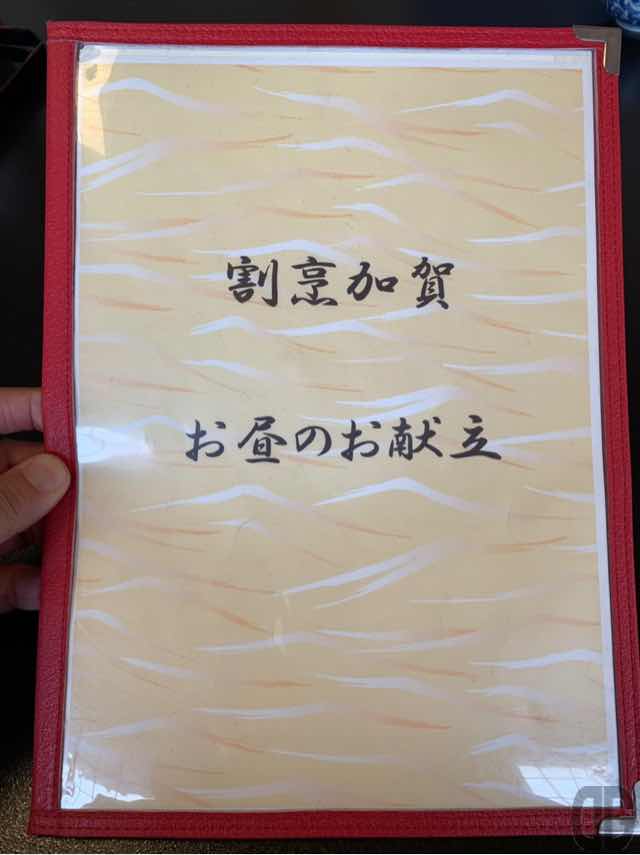 割烹加賀
お昼のお献立